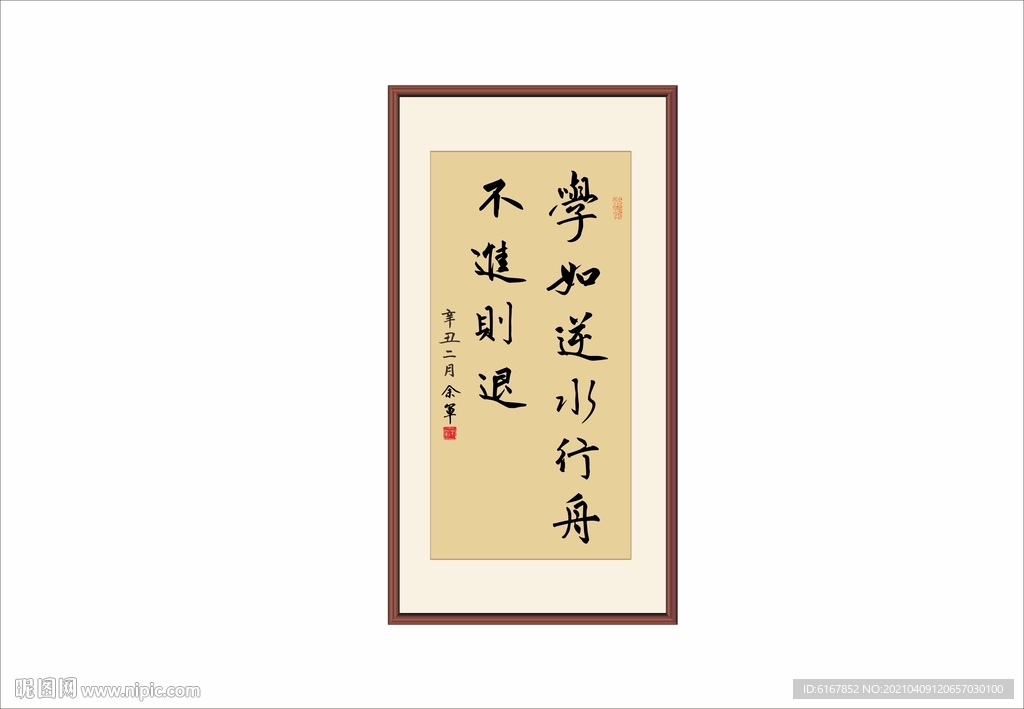 學如逆水行舟
不進則退
辛丑二月余軍
昵图网 www.nipic.com
ID:6167852 NO:20210409120657030100